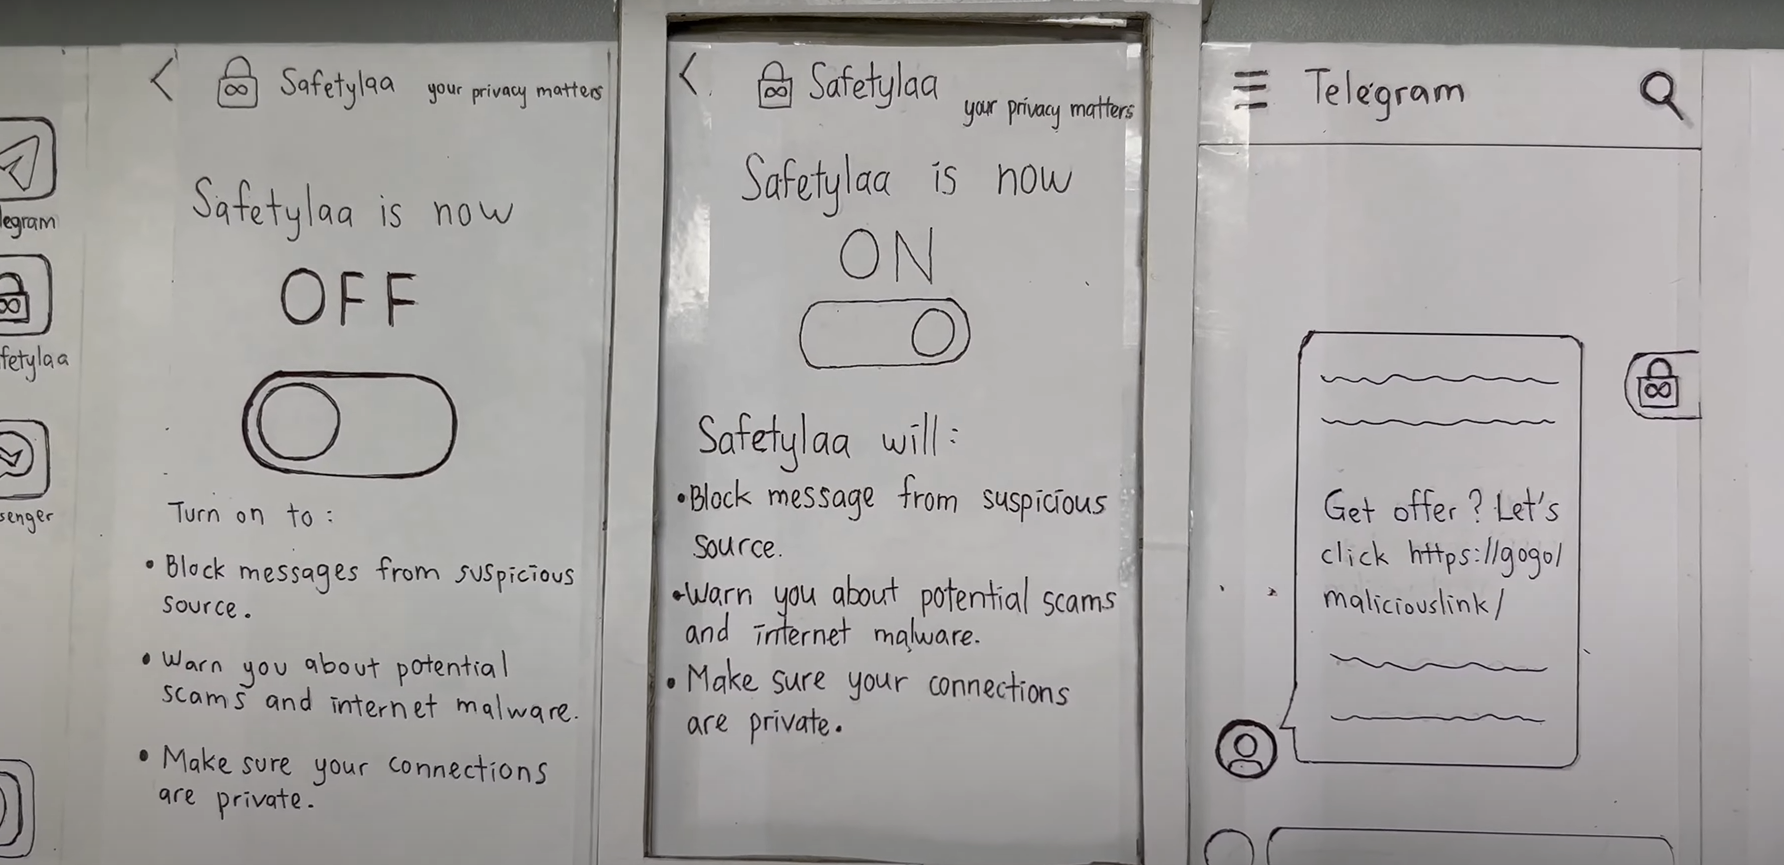 legram
fetylaa
senger
Safetylaa your privacy matters
Safetylaa is now
OFF
Turn on to :
• Block messages from suspicious
source.
• Warn you about potential
scams and internet malware.
• Make sure your connections
are private.
Safetylaa your privacy matters
Safetylaa is now
ON
Safetylaa will :
• Block message from suspicious
source.
• Warn you about potential scams
and internet malware.
• Make sure your connections
are private.
Telegram
Get offer ? Let's
click https://gogo/
maliciouslink/